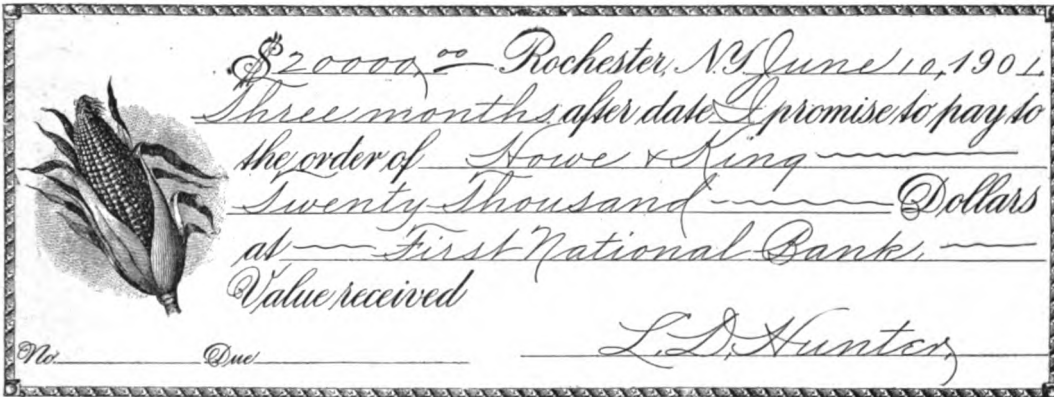 $20000,00 Rochester, N.Y. June 10, 1901.
Three months after date I promise to pay to
the order of Howe & King
Twenty Thousand Dollars
at First National Bank,
Value received
No. Due L. D. Hunter,